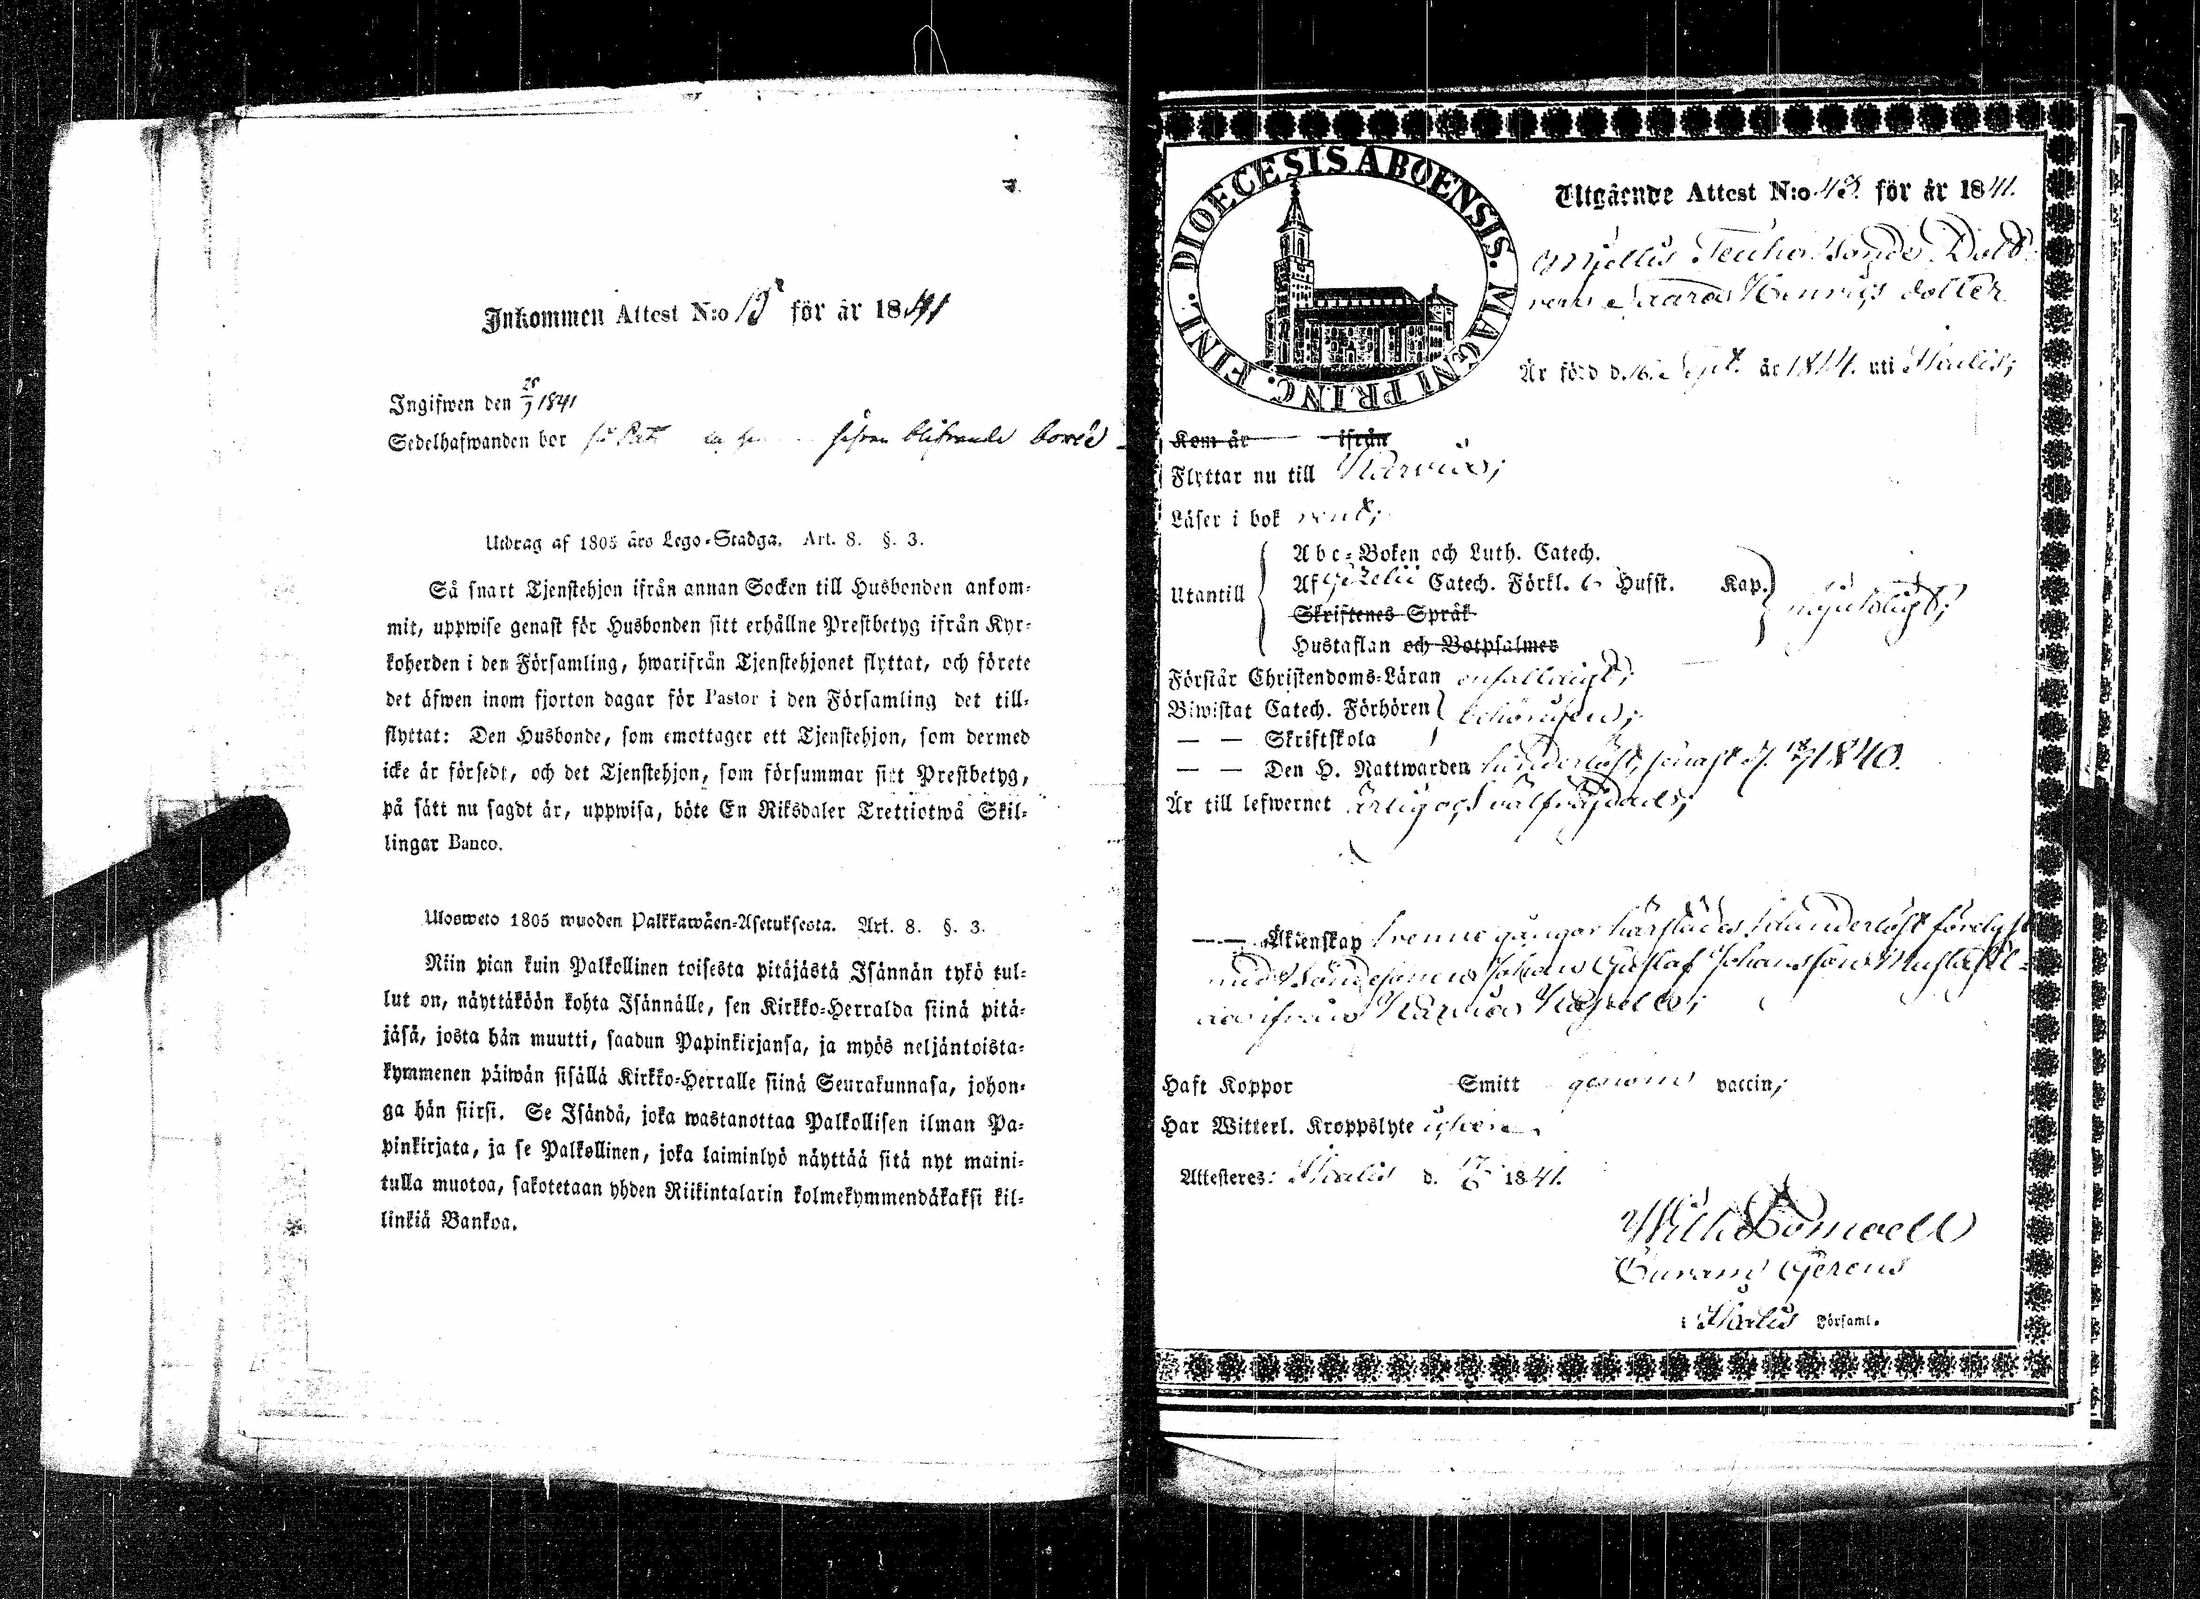 Inkommen Attest N:o 15 för år 1841
Ingifwen den 28/9 1841
Sedelhafwanden bor
blifvande
Utdrag af 1805 års Lego-Stadga. Art. 8. §. 3.
Så snart Tjenstehjon ifrån annan Socken till Husbonden ankom-
mit, uppwise genast för Husbonden sitt erhållne Prestbetyg ifrån Kyr-
koherden i den Församling, hwarifrån Tjenstehjonet flyttat, och förete
det äfwen inom fjorton dagar för Pastor i den Församling det till-
flyttat: Den Husbonde, som emottager ett Tjenstehjon, som dermed
icke är försedt, och det Tjenstehjon, som försummar sitt Prestbetyg,
på sätt nu sagdt är, uppwisa, böte En Riksdaler Trettiotwå Skil-
lingar Banco.
Ulosweto 1805 wuoden Palkkawäen-Asetuksesta. Art. 8. §. 3.
Niin pian kuin Palkollinen toisesta pitäjästä Isännän tykö tul-
lut on, näyttäköön kohta Isännälle, sen Kirkko-Herralda siinä pitä-
jäsä, josta hän muutti, saadun Papinkirjansa, ja myös neljäntoista-
kymmenen päiwän sisällä Kirkko-Herralle siinä Seurakunnasa, johon-
ga hän siirsi. Se Isändä, joka wastanottaa Palkollisen ilman Pa-
pinkirjata, ja se Palkollinen, joka laiminlyö näyttää sitä nyt maini-
tulla muotoa, sakotetaan yhden Riikintalarin kolmekymmendäkaksi kil-
linkiä Bankoa.
DIOECESIS ABOENSIS. MAGNI PRINC. FINL.
Utgående Attest N:o 43. för år 1841.
Saara Henrics dotter
Är född d. 16. Sept. år 1814. uti
Kom år ifrån
Flyttar nu till Karuna;
Läser i bok rent;
Abc-Boken och Luth. Catech.
Utantill Af Gezelii Catech. Förkl. 6 Husst. Kap. nöjaktigt;
Skriftenes Språk
Hustaflan och Botpsalmer
Förstår Christendoms-Läran enfaldigt;
Biwistat Catech. Förhören behörigen;
— — Skriftskola
— — Den H. Nattwarden hinderlöst, senast d. 1840.
Är till lefwernet ärlig och välfräjdad;
— — Äktenskap trenne gångor härstädes hinderlöst förelyst
med Johan Gustaf Johansson
ifrån Karuna Kapell;
Haft Koppor Smitt genom vaccin;
Har Witterl. Kroppslyte
Attesteres: d. 17/6 1841.
Wilh.
i Församl.